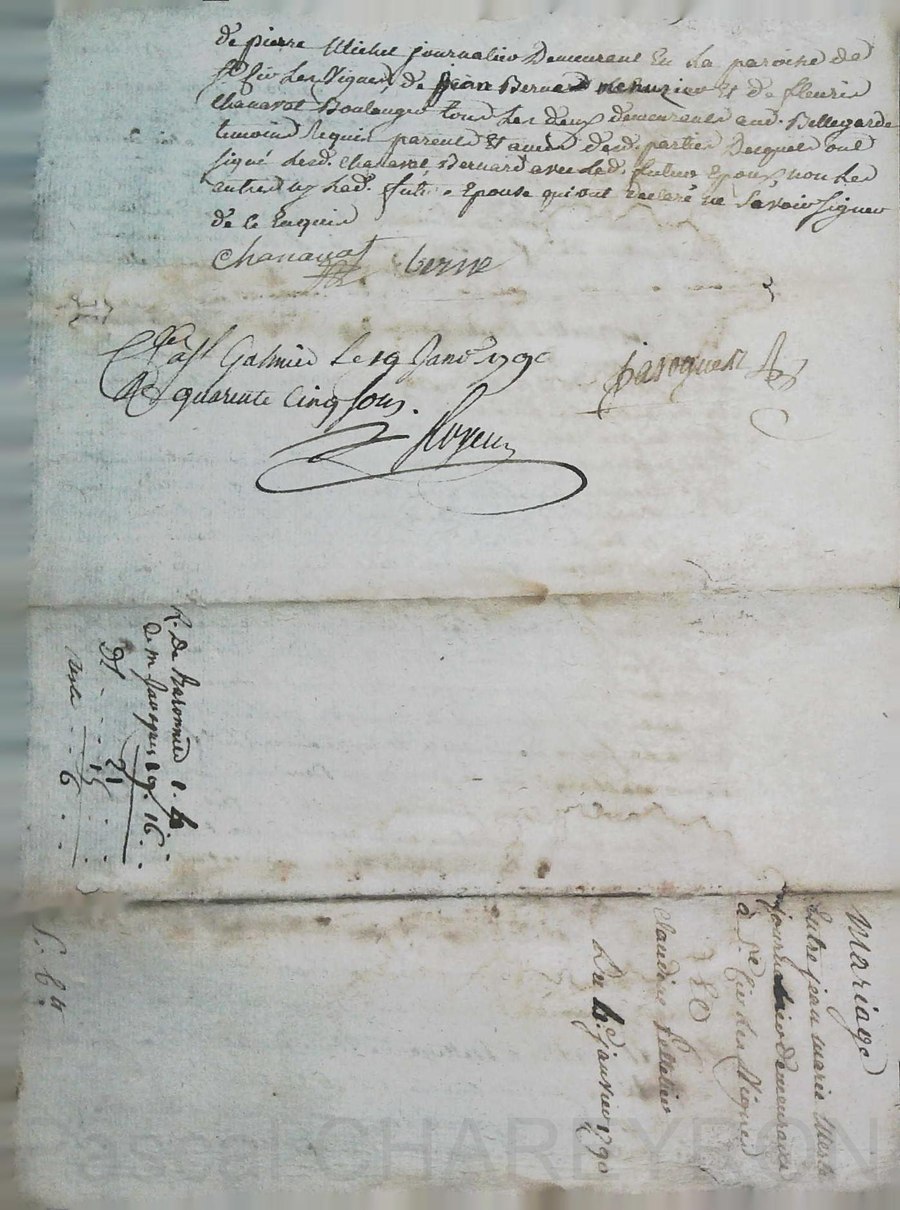 de pierre Michel journalier Demeurant En La paroise de
St Cir Les Vignes, de jean Bernard menuzier Et de fleurie
Chanavat Boulanger tous Les deux demeurants aud. Bellegarde
temoins Requis parents Et amis desd. parties Lesquels ont
signé Lesd. Chanavat, Bernard avec Led. futur Epoux, non Les
autres ny Lad. futu. Epouse qui ont declaré ne Savoir signer
de ce Enquis
Chanavat berne
a St Galmier Le 19 Janv. 1790
quarente Cinq Sous.
R. De
de m 19. 16
21
15
reste 6
Mariage
Entre jean marie
journalier demeurant
à St Cir les Vignes
&
Claudine
Du janvier 1790
Pascal CHAREYRON